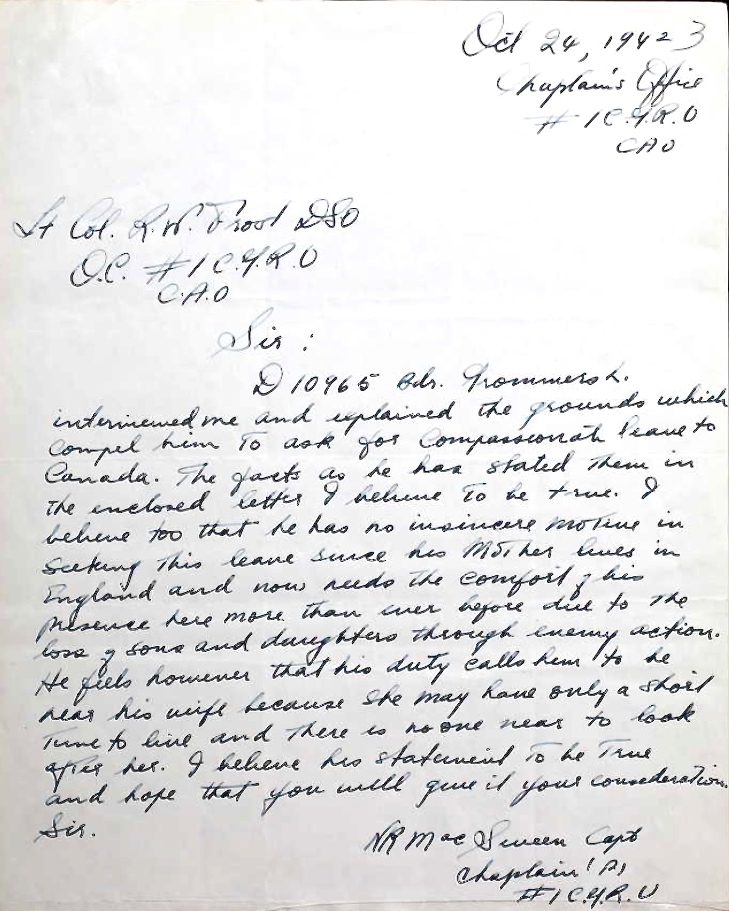 Oct 24, 1942 3
Chaplain's Office
# 1 C.G.R.U
CAO
Lt Col. R.W. Frost DSO
O.C. # 1 C.G.R.U
C.A.O
Sir :
D 10965 Bdr. Grommers L.
interviewed me and explained the grounds which
compel him to ask for Compassionate leave to
Canada. The facts as he has stated them in
the enclosed letter I believe to be true. I
believe too that he has no insincere motive in
seeking this leave since his Mother lives in
England and now needs the comfort of his
presence here more than ever before due to the
loss of sons and daughters through enemy action.
He feels however that his duty calls him to be
near his wife because she may have only a short
time to live and there is no one near to look
after her. I believe his statement to be true
and hope that you will give it your consideration
Sir.
NR MacSween Capt
Chaplain
# 1 C.G.R.U